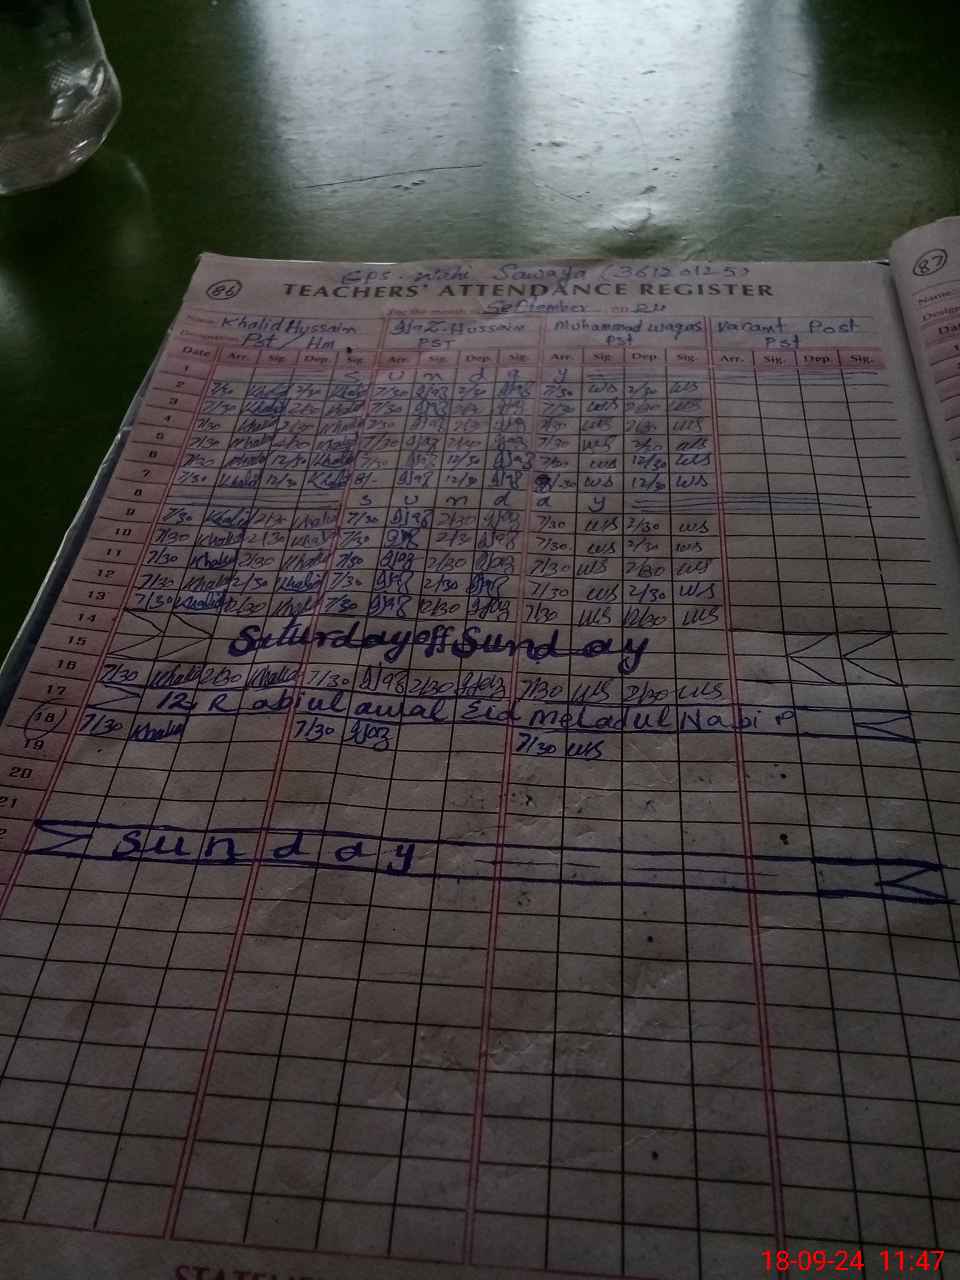 86
GPS. Sawaya (36120125)
TEACHERS' ATTENDANCE REGISTER
For the month of September on 24
Name Khalid Hussain Ijaz Hussain Mohammad Waqas Vacant Post
Pst / Hm PST Pst Pst
Date Arr. Sig. Dep. Sig. Arr. Sig. Dep. Sig. Arr. Sig. Dep. Sig. Arr. Sig. Dep. Sig.
1 S u n d a y
2 7/30 Khalid 2/30 Khalid 7/30 Ijaz 2/30 Ijaz 7/30 WS 2/30 WS
3 7/30 Khalid 2/30 Khalid 7/30 Ijaz 2/30 Ijaz 7/30 WS 2/30 WS
4 7/30 Khalid 2/30 Khalid 7/30 Ijaz 2/30 Ijaz 7/30 WS 2/30 WS
5 7/30 Khalid 2/30 Khalid 7/30 Ijaz 2/30 Ijaz 7/30 WS 2/30 WS
6 7/30 Khalid 12/30 Khalid 7/30 Ijaz 12/30 Ijaz 7/30 WS 12/30 WS
7 7/30 Khalid 12/30 Khalid 8/- Ijaz 12/30 Ijaz /30 WS 12/30 WS
8 S u n d a y
9 7/30 Khalid 2/30 Khalid 7/30 Ijaz 2/30 Ijaz 7/30 WS 2/30 WS
10 7/30 Khalid 2/30 Khalid 7/30 Ijaz 2/30 Ijaz 7/30 WS 2/30 WS
11 7/30 Khalid 2/30 Khalid 7/30 Ijaz 2/30 Ijaz 7/30 WS 2/30 WS
12 7/30 Khalid 2/30 Khalid 7/30 Ijaz 2/30 Ijaz 7/30 WS 2/30 WS
13 7/30 Khalid 12/30 Khalid 7/30 Ijaz 12/30 Ijaz 7/30 WS 12/30 WS
14
15 Saturday off Sunday
16 7/30 Khalid 2/30 Khalid 7/30 Ijaz 2/30 Ijaz 7/30 WS 2/30 WS
17 12 Rabiul awal Eid Meladul Nabi P
18 7/30 Khalid 7/30 Ijaz 7/30 WS
19
20
21
2 Sunday
87
Name:
Design
Dat
18-09-24 11:47